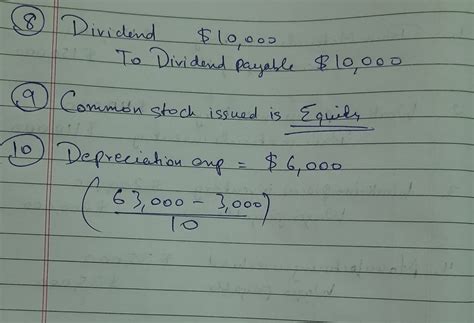 8 Dividend $10,000
To Dividend payable $10,000
9 Common stock issued is Equity
10 Depreciation exp = $6,000
(63,000 - 3,000)
10